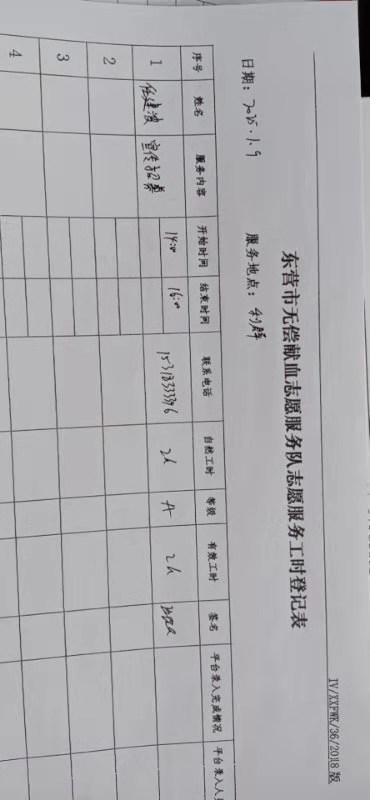 IV/XXFWK/36/2018版
东营市无偿献血志愿服务队志愿服务工时登记表
日期：2025.1.9 服务地点：利群
序号 姓名 服务内容 开始时间 结束时间 联系电话 自然工时 等级 有效工时 签名 平台录入完成情况 平台录入人员
1 任建波 宣传招募 14:00 16:00 2h A 2h
2
3
4